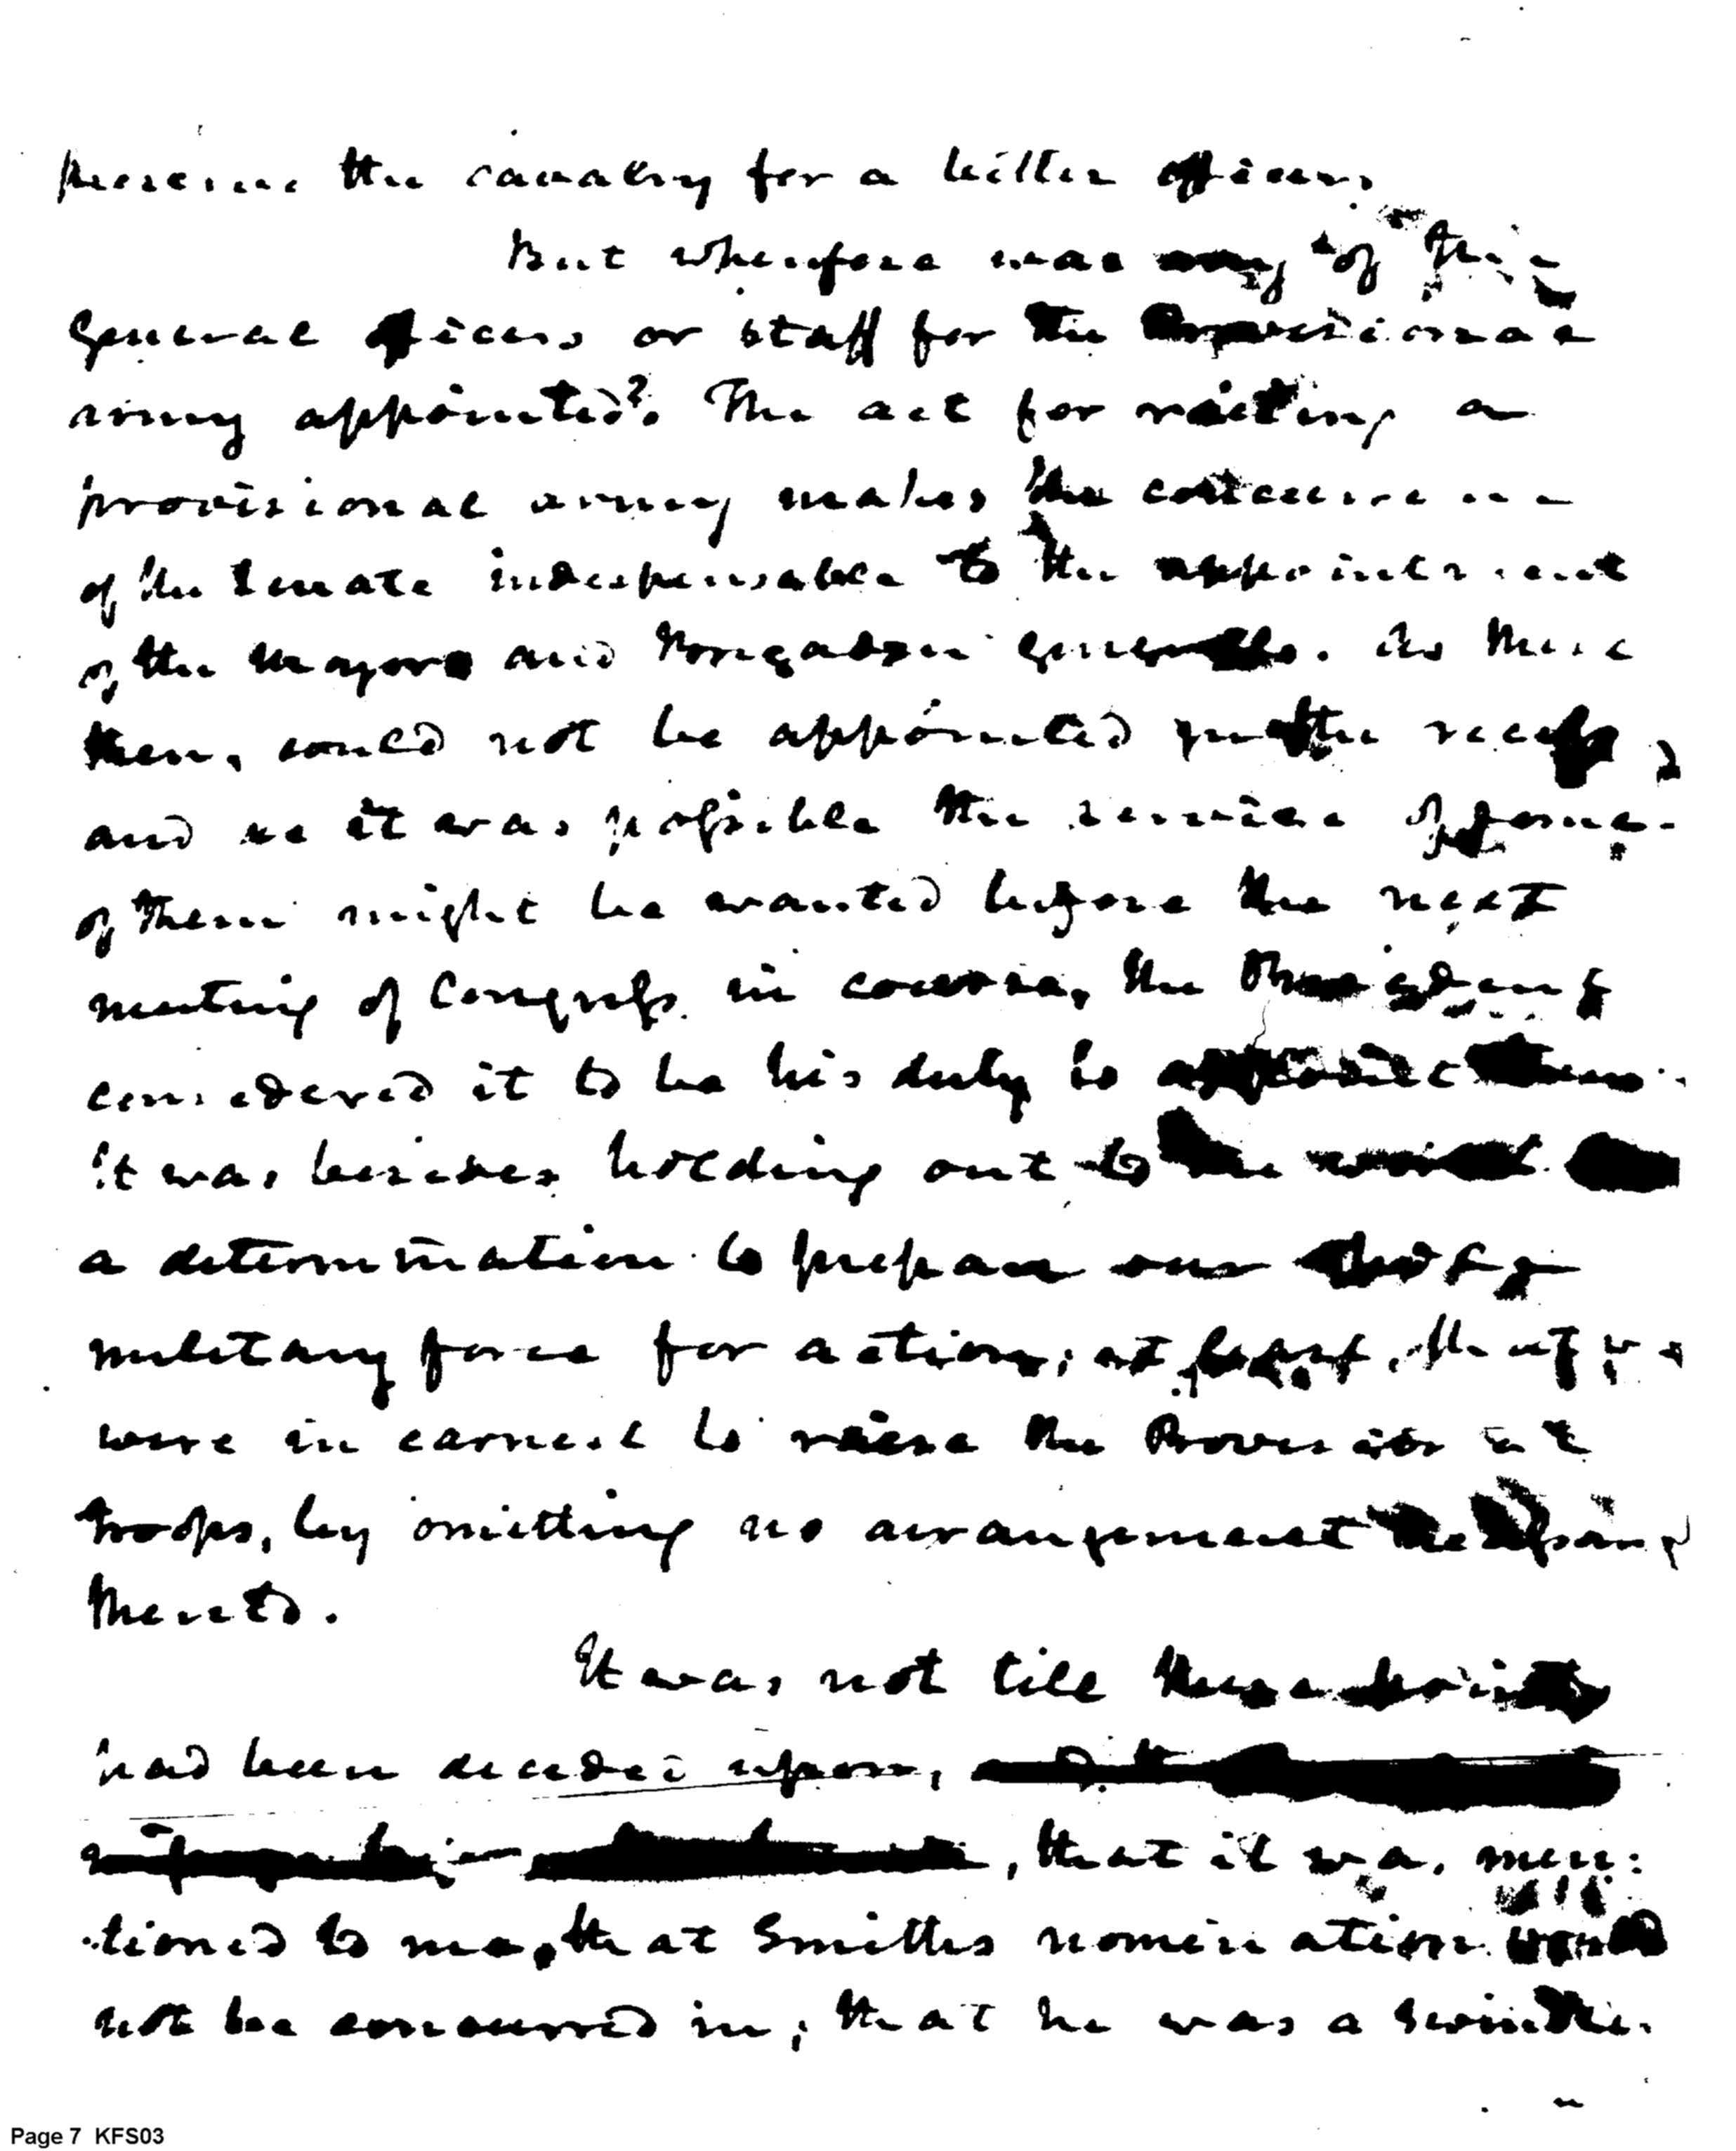 the cavalry for a better officer.
But wherefore was any of the
general officers or staff for the Provisional
army appointed? The act for raising a
provisional army makes the concurrence
of the Senate indispensable to the appointment
of the Major and Brigadier generals. As these
then, could not be appointed in the recess,
and as it was possible the service of some
of them might be wanted before the next
meeting of Congress in course, the President
considered it to be his duty to appoint them.
It was besides holding out to the world
a determination to prepare our
military force for action; at least, that we
were in earnest to raise the Provisional
troops, by omitting no arrangement
ments.
It was not till these points
had been decided upon,
, that it was men:
tioned to me, that Smiths nomination would
not be concurred in; that he was a
Page 7 KFS03